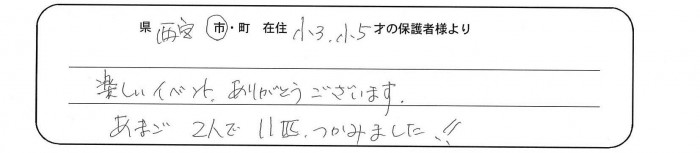 県 西宮 市・町 在住 小3、小5 才の保護者様より
楽しいイベント、ありがとうございます。
あまご 2人で 11匹、つかみました!!